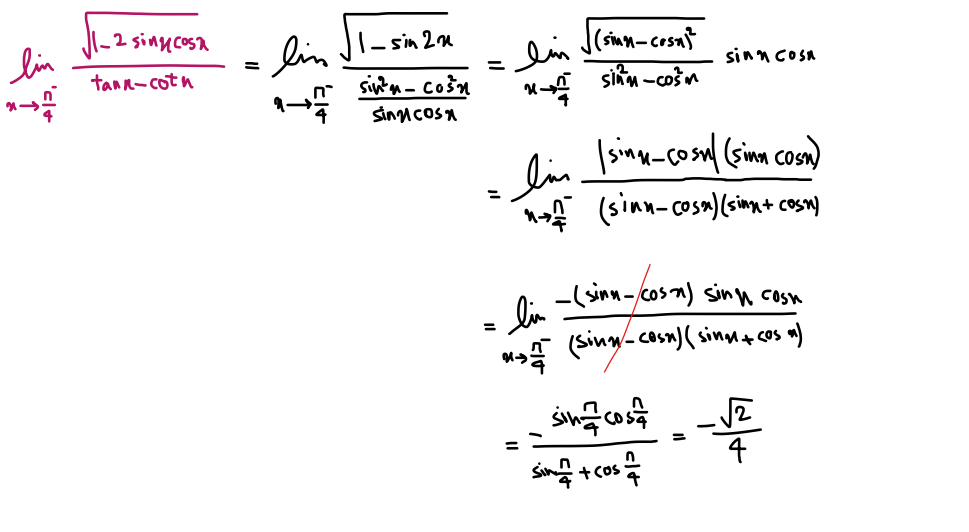 lim x→π/4⁻ √(1-2 sinx cosx) / (tanx-cotx) = lim x→π/4⁻ √(1-sin2x) / ((sin²x-cos²x)/(sinx cosx)) = lim x→π/4⁻ √((sinx-cosx)²) / (sin²x-cos²x) sinx cosx
= lim x→π/4⁻ |sinx-cosx|(sinx cosx) / (sinx-cosx)(sinx+cosx)
= lim x→π/4⁻ -(sinx-cosx) sinx cosx / (sinx-cosx)(sinx+cosx)
= - sin π/4 cos π/4 / (sin π/4 + cos π/4) = -√2/4